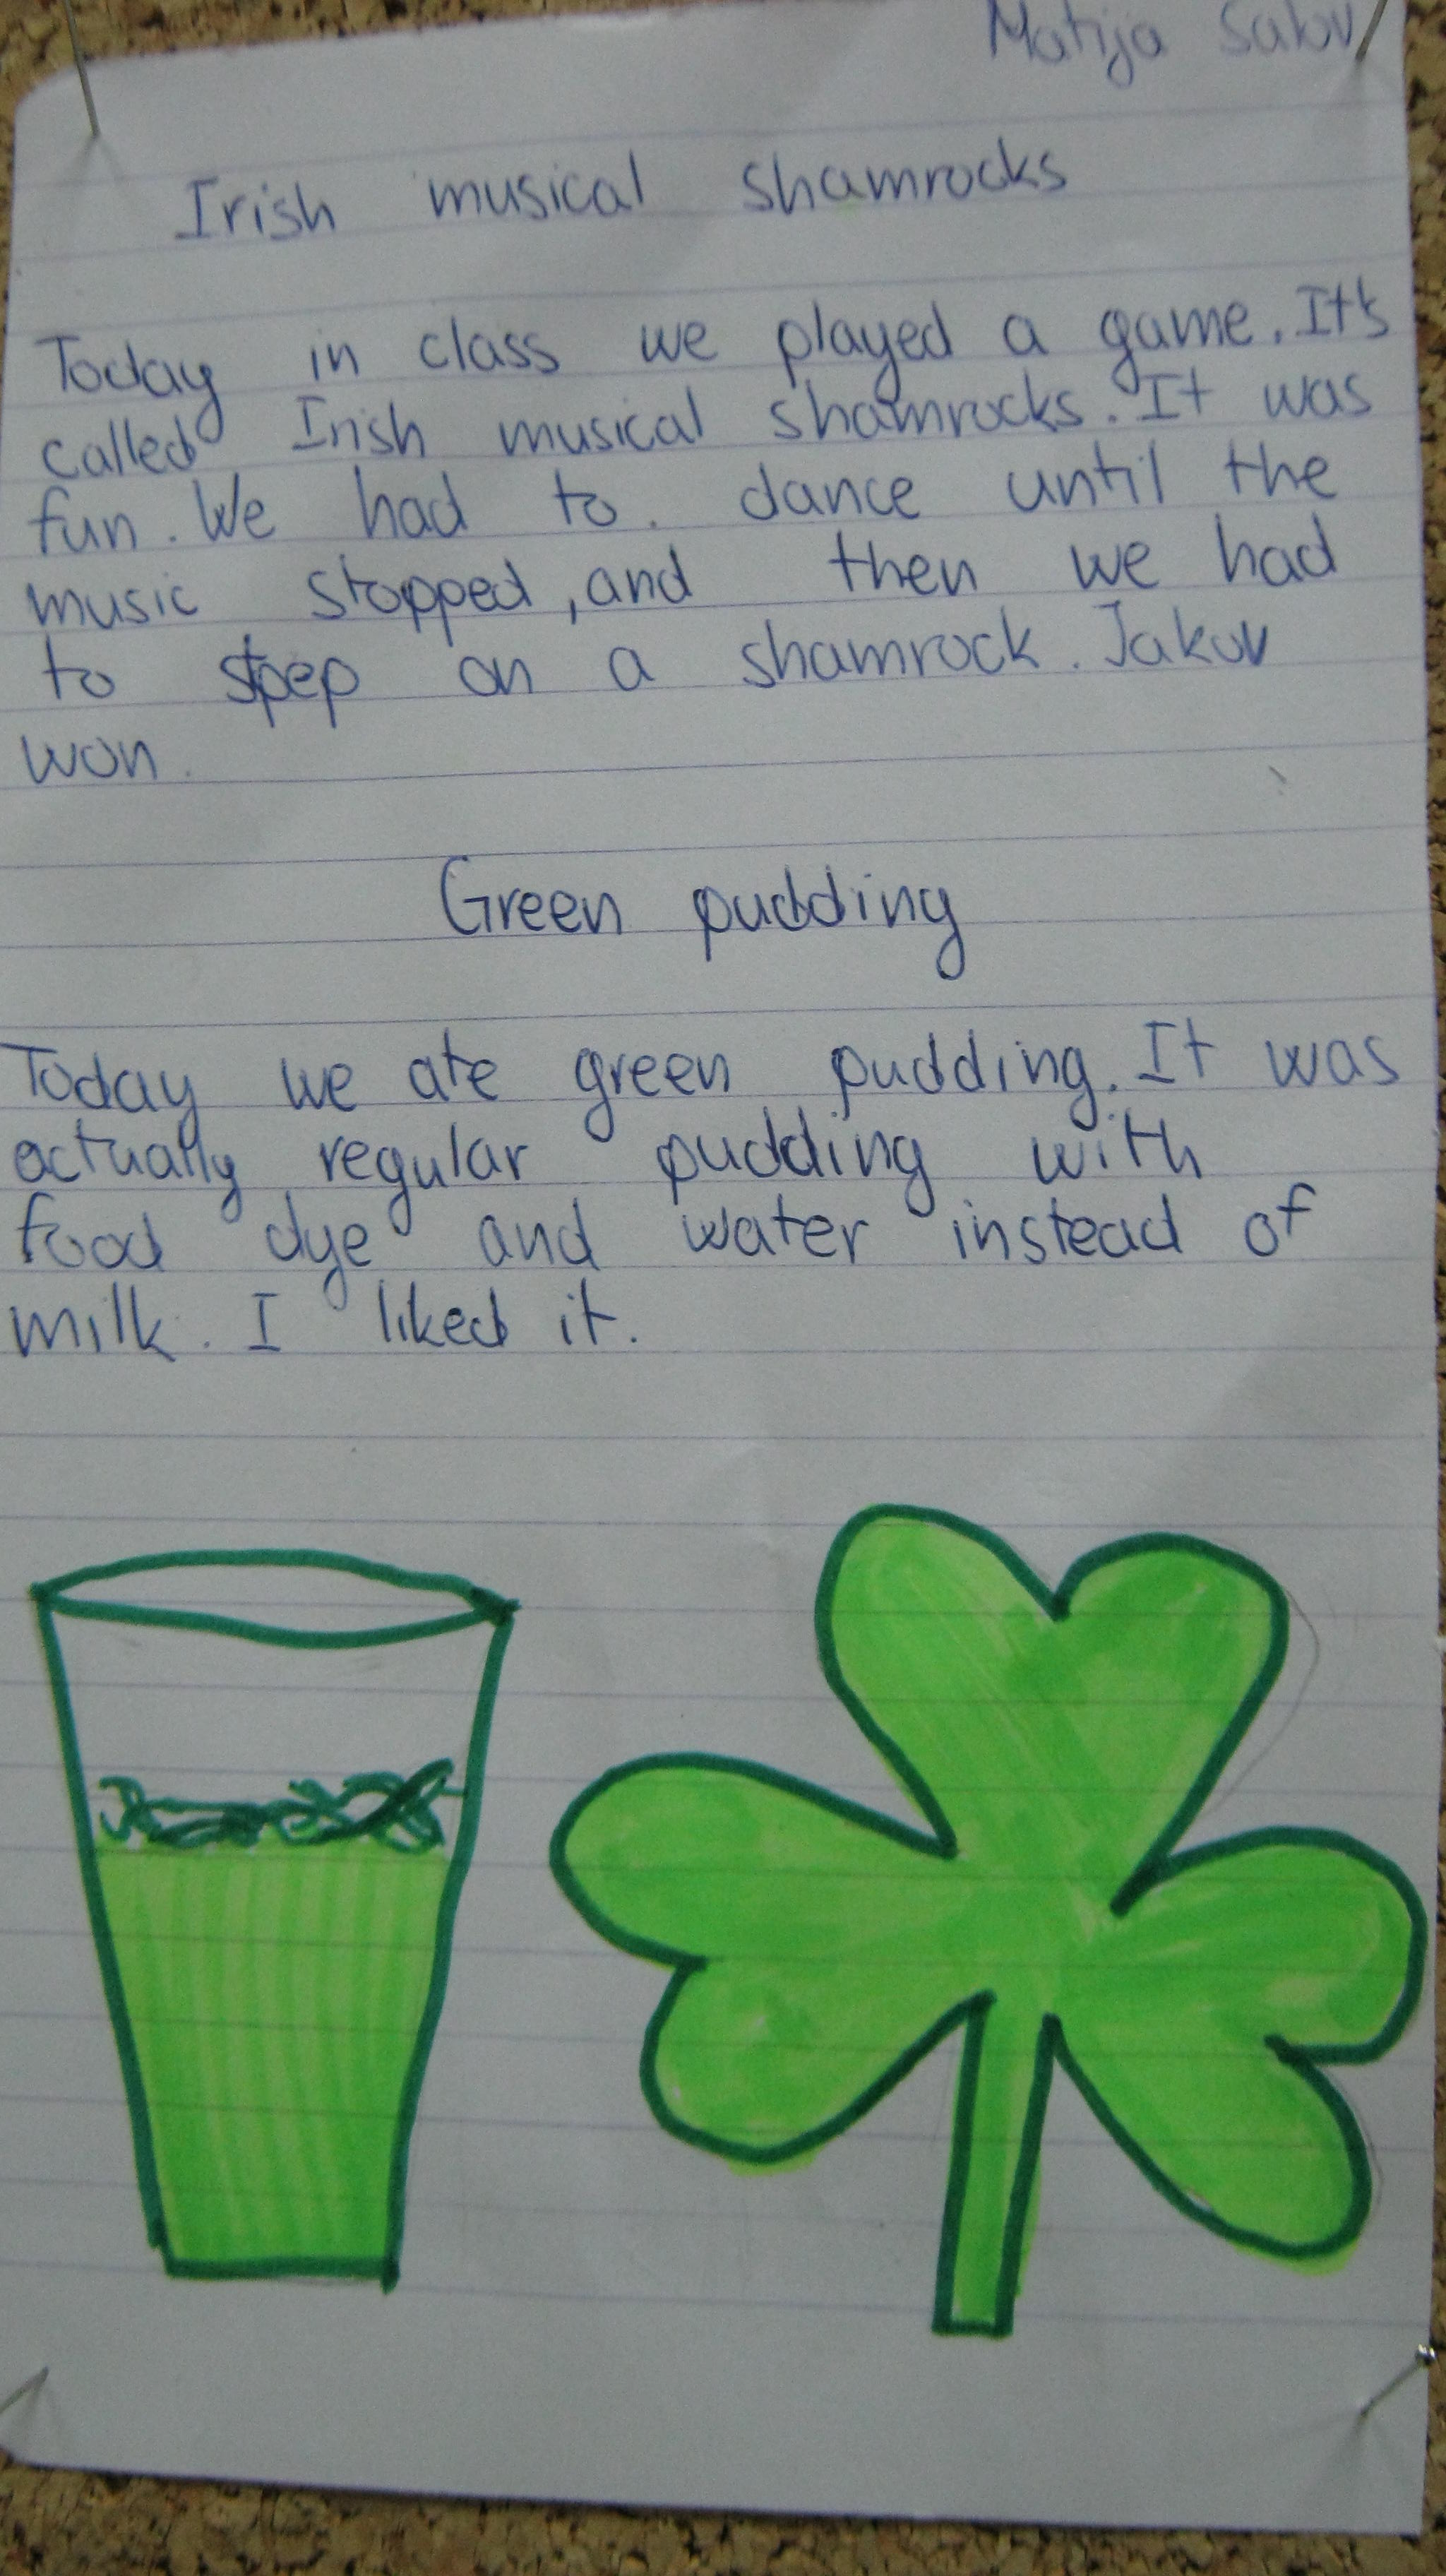 Matija Sakov
Irish musical shamrocks
Today in class we played a game. It's
called Irish musical shamrocks. It was
fun. We had to. dance until the
music stopped, and then we had
to step on a shamrock. Jakov
won.
Green pudding
Today we ate green pudding. It was
actually regular pudding with
food dye and water instead of
milk. I liked it.